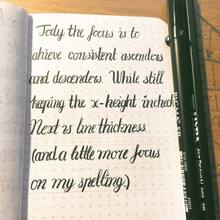 Tody the focus is to
achieve consistent ascenders
and descenders. While still
keeping the x-height inched.
Next is line thickness
(and a little more focus
on my spelling.)